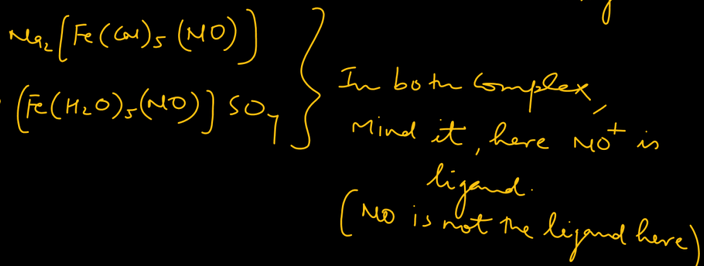 Na2[Fe(CN)5(NO)]
[Fe(H2O)5(NO)]SO4
In both complex,
Mind it, here NO+ is
ligand.
(NO is not the ligand here)